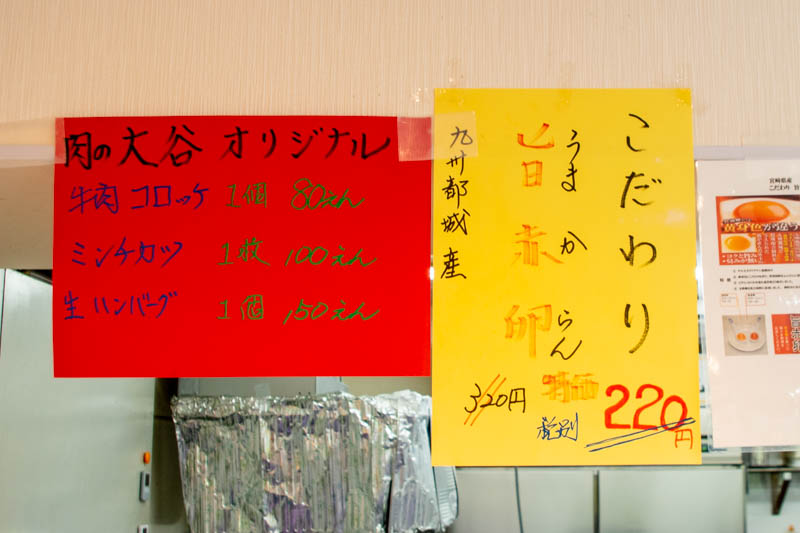 肉の大谷 オリジナル
牛肉 コロッケ 1個 80えん
ミンチカツ 1枚 100えん
生ハンバーグ 1個 150えん
こだわり
うまからん
旨赤卵
九州都城産
320円
特価
220円
税別
宮崎県産